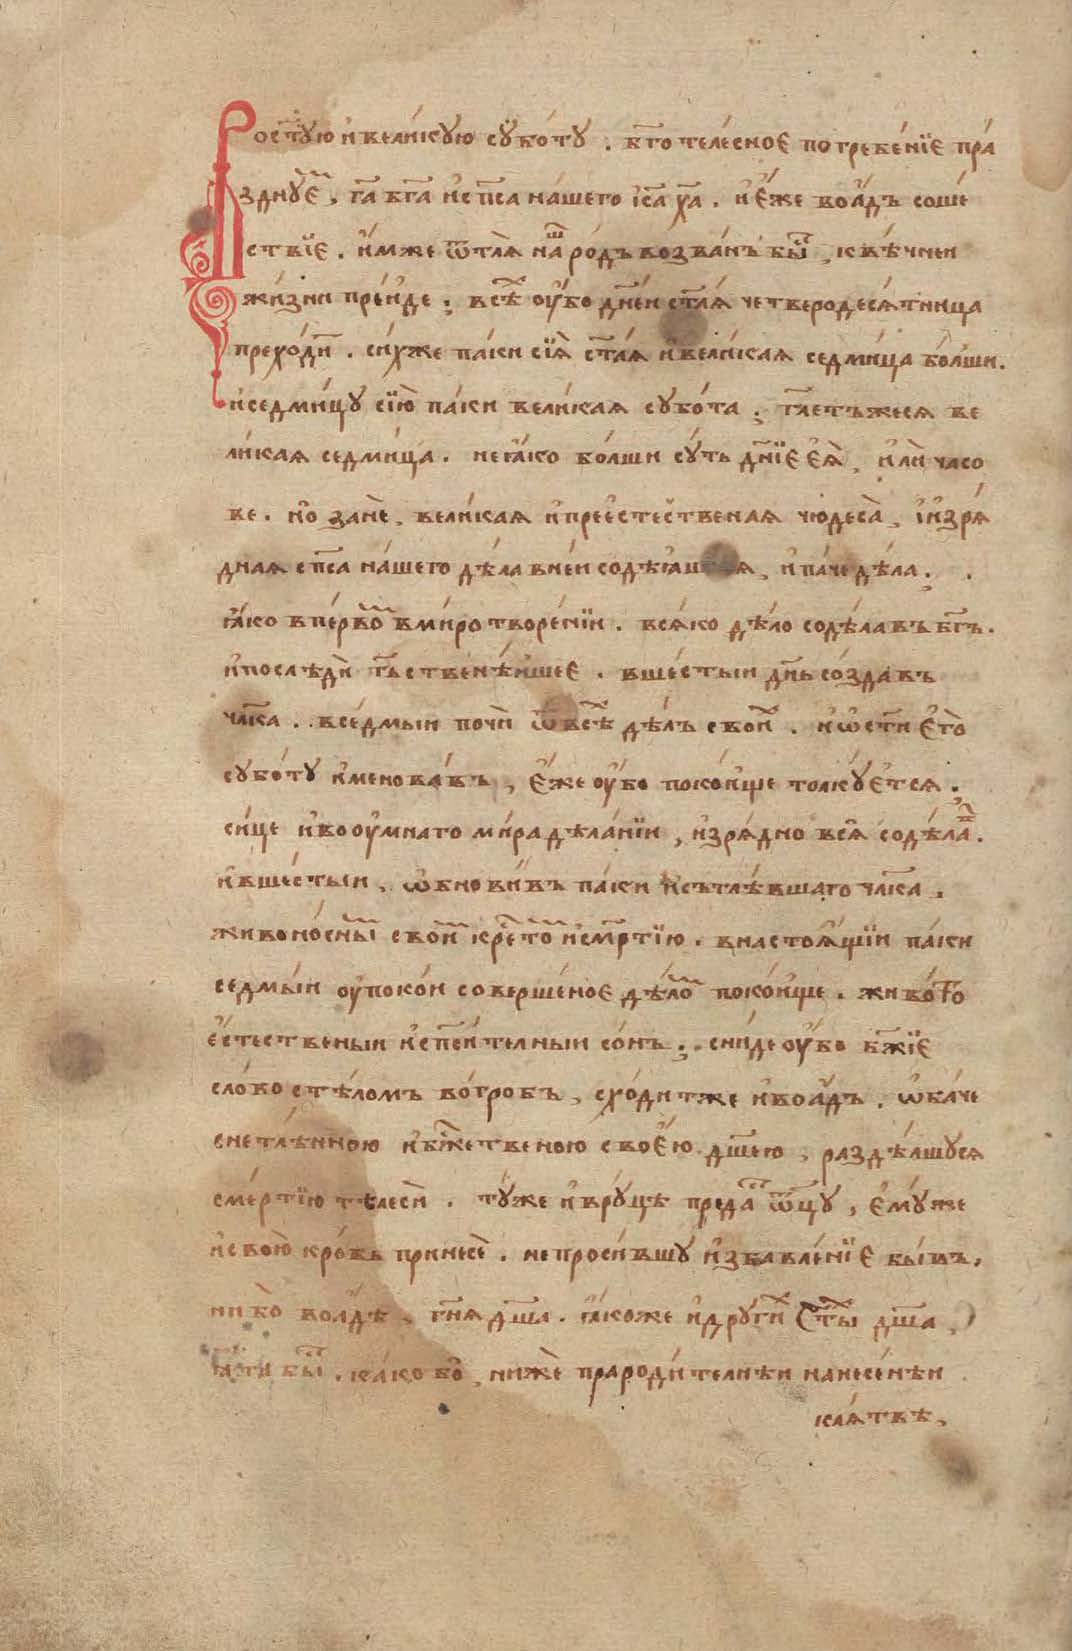 Во ст҃ую и҆ вели́кую сꙋбо́тꙋ . бг҃отеле́сное погребе́нїе пра́
зднꙋ́еⷨ , га҃ бг҃а и҆ сп҃са на́шего і҆с҃а хр҃а . и҆ є҆́же во а҆́дъ соше́
ствїе . и҆́мже ѿ тлѧ̀ на́шⷩ ро́дъ возва́нъ бы́ⷭ , к вѣ́чнеи
жи́зни преи́де ; всѣ́ⷯ оу҆́бо дн҃е́и ст҃а́ѧ четверодесѧ́тница
прехо́диⷮ . си́хже па́ки сїѧ̀ ст҃а́ѧ и҆ вели́каѧ седми́ца бо́лши .
и҆ седми́цꙋ сїю̀ па́ки вели́каѧ сꙋбо́та ; гл҃етъжесѧ ве
ли́каѧ седми́ца . не ꙗ҆́ко бо́лши сꙋ́ть дн҃їе є҆ѧ̀ , и҆лѝ часо
ве . но̀ занѐ , вели́каѧ и҆ прее҆сте́ственаѧ чюдеса̀ , і҆ и҆зрѧ́
днаѧ сп҃са на́шего дѣ́ла в не́и содѣ́ѧшасѧ , и҆ па́че дѣ́ла .
ꙗ҆́ко в пе́рвоⷨ в ми́ротворе́нїи . всѧ́ко дѣ́ло содѣ́лавъ бг҃ъ .
и҆ послѣдѝ гд҃ьственѣ́ишее . в шесты́и дн҃ь созда́въ
чл҃ка . в седмы́и почѝ ѿ всѣ́ⷯ дѣ́лъ свои́ⷯ . и҆ ѡ҆ст҃и є҆го̀
сꙋбо́тꙋ и҆менова́въ , є҆́же оу҆́бо поко́ище толкꙋ́етсѧ .
си́це и҆ во оу҆́мнаго ми́ра дѣ́ланїи , и҆зрѧ́дно всѧ̑ содѣ́лаⷡ .
и҆ в шесты́и , ѡ҆бнови́въ па́ки и҆сътлѣ́вшаго чл҃ка .
живоно́сныⷨ свои́ⷨ крⷭ҇то́ⷨ и҆ см҃ртїю . в настоѧ́щїи па́ки
седмы́и оу҆поко́и соверше́ное дѣ́лоⷨ поко́ище . живо́тⷩо
є҆сте́ственыи и҆ сп҃си́телныи со́нъ ; сни́де оу҆́бо бж҃їе
сло́во с тѣ́ломъ во гро́бъ , схо́дитже и҆ во а҆́дъ . ѡ҆ба́че
с нетлѣ́нною и҆ бжⷭ҇твеною свое́ю дш҃ею , раздѣ́лшꙋсѧ
сме́ртїю телесѝ . тꙋ́же и҆ в рꙋ́цѣ преда́ⷭ ѿцꙋ , є҆мꙋ́же
и҆ свою̀ кро́вь принесѐ . не проси́вшꙋ и҆збавле́нїе бы́въ ,
ни бо̀ во а҆́дѣ , гн҃ѧ дш҃а . ꙗ҆́коже и҆ дрꙋги́ⷯ ст҃ы́ⷯ дш҃а ,
ꙗ҆та бы́ⷭ . ка́ко бо̀ , нижѐ прароди́телнѣи нанесе́нѣи
клѧ́твѣ ,